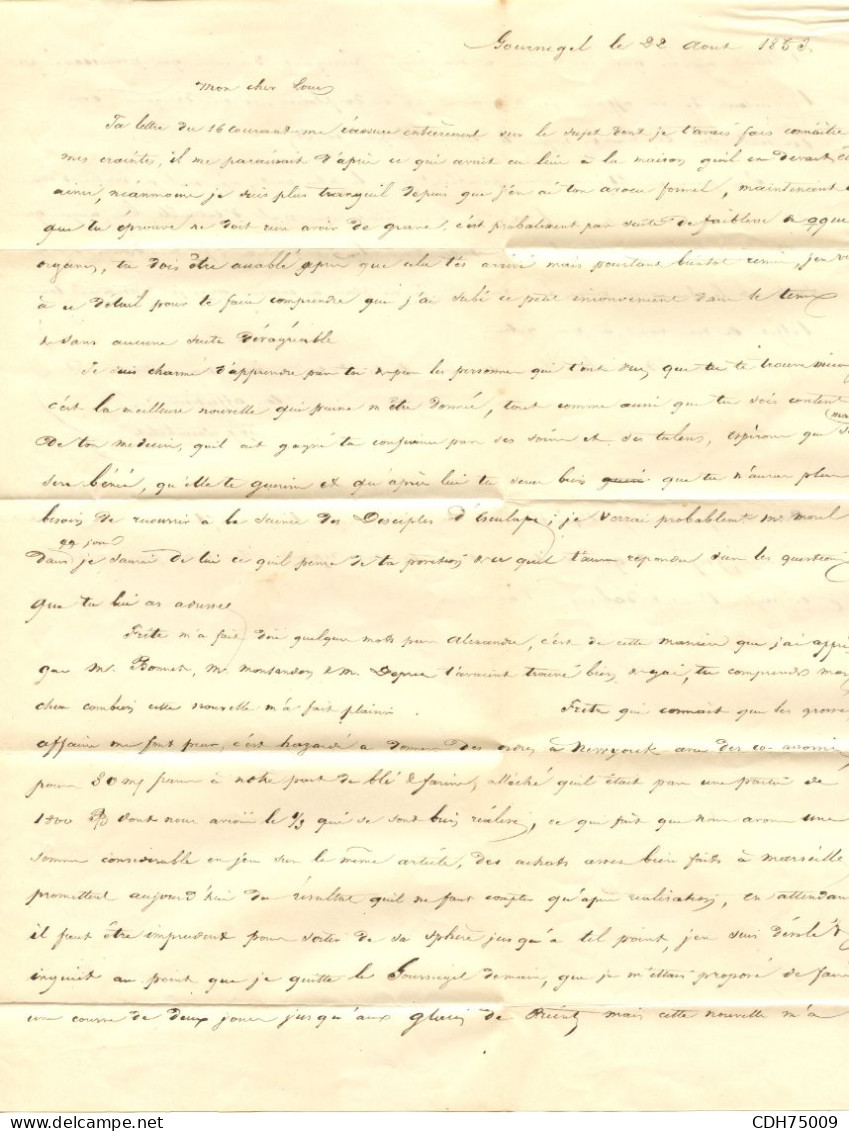 Gournegel le 22 Aout 1853.
Mon cher Louis
Ta lettre du 16 courant me rassure entièrement sur le sujet dont je t'avais fais connaitre
mes craintes, il me paraissait d'après ce qui avait eu lieu à la maison qu'il en devait
ainsi, néanmoins je suis plus tranquil depuis que j'en ai ton aveu formel, maintenant
que tu éprouve ne doit rien avoir de grave, c'est probablement par suite de faiblesse de qque
organes, tu dois être accablé après que cela t'es arrivé mais pourtant bientot remis, j'en
à ce détail pour te faire comprendre que j'ai subi ce petit inconvenient dans le temps
& sans aucune suite désagréable
Je suis charmé d'apprendre par toi & par les personnes qui t'ont vu, que tu te trouve mieux
c'est la meilleure nouvelle qui puisse m'être donnée, tout comme aussi que tu sois content
De ton medecin, qu'il ait gagné ta confiance par ses soins et ses talens, espérons que
sera bénie, qu'elle te guerira et qu'après lui tu seras bien que tu n'auras plus
besoin de recourrir a la science des Disciples d'Esculape; je verrai probablemt. Mr. Morel
qq jours
dans je saurai de lui ce quil pense de ta position & ce quil t'aura repondu sur les questions
que tu lui as adressé
Fritz m'a fait dire quelques mots par Alexandre, c'est de cette maniere que j'ai appris
que Mr. Bonnet, Mr. Montandon & M. t'avaient trouvé bien & gai, tu comprends mon
cher combien cette nouvelle m'a fait plaisir. Fritz qui connait que les grosses
affaires me font peur, c'est hazardé a donner des ordres à Newyork avec des co-associés
pour 80 m/ francs à notre part de blé & farine, alléché qu'il était par une partie de
1800 dont nous avions le 1/3 qui se sont bien réalisés, ce qui fait que nous avons une
somme considerable en jeu sur le même article, des achats assez bien faits à Marseille
promettent aujourd'hui du résultat quil ne faut compter qu'après realisation, en attendan
il faut être imprudent pour sortir de sa sphère jusqu'à tel point, j'en suis désolé &
inquiet au point que je quitte le Gournigel demain, que je m'étais proposé de faire
une course de deux jours jusqu'aux glaciers de mais cette nouvelle m'a
CDH75009